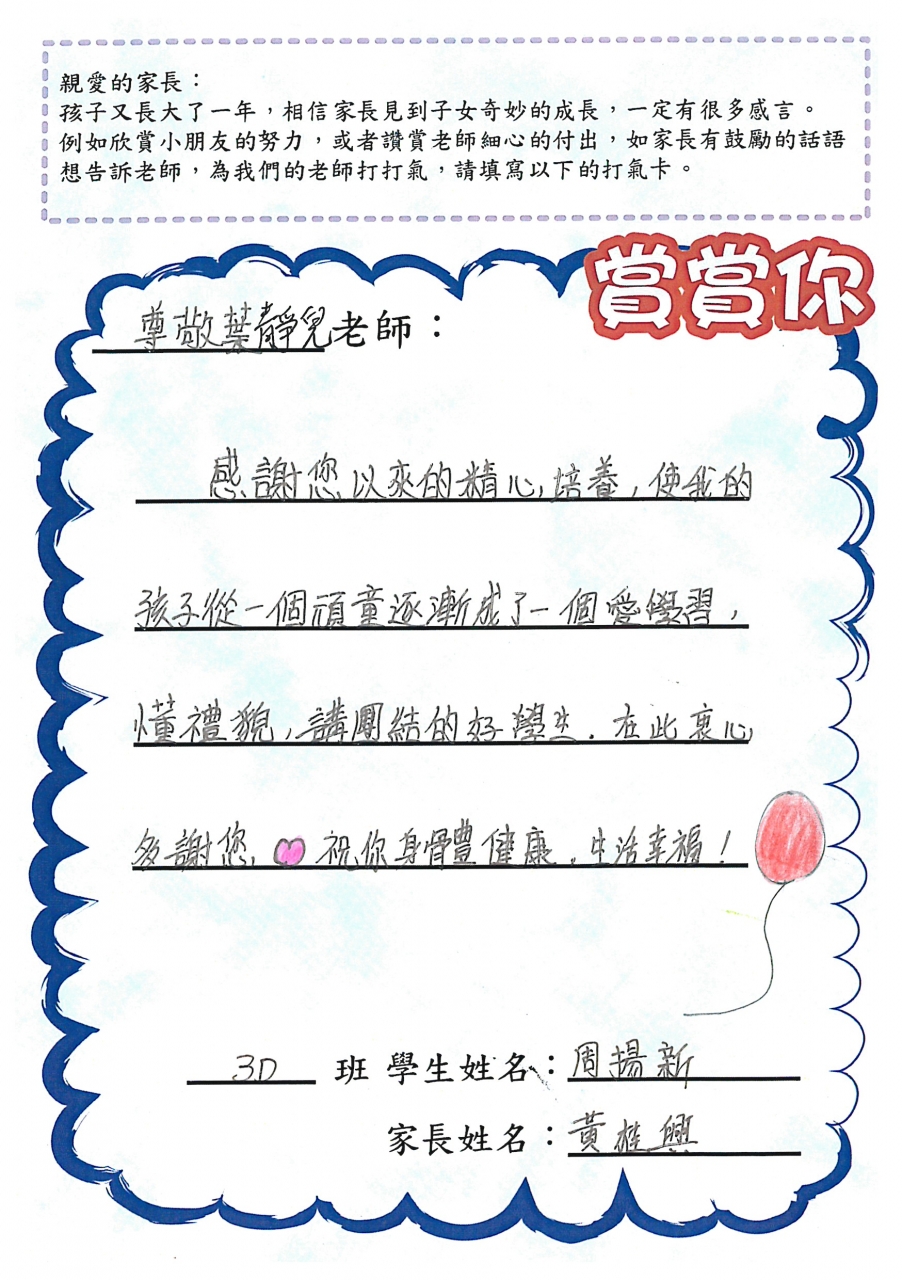 親愛的家長：
孩子又長大了一年，相信家長見到子女奇妙的成長，一定有很多感言。
例如欣賞小朋友的努力，或者讚賞老師細心的付出，如家長有鼓勵的話語
想告訴老師，為我們的老師打打氣，請填寫以下的打氣卡。
賞賞你
尊敬葉靜兒老師：
感謝您以來的精心培養，使我的
孩子從一個頑童逐漸成了一個愛學習，
懂禮貌，講團結的好學生．在此衷心
多謝您，祝你身體健康．生活幸福！
3D 班 學生姓名：周揚新
家長姓名：黃桂興